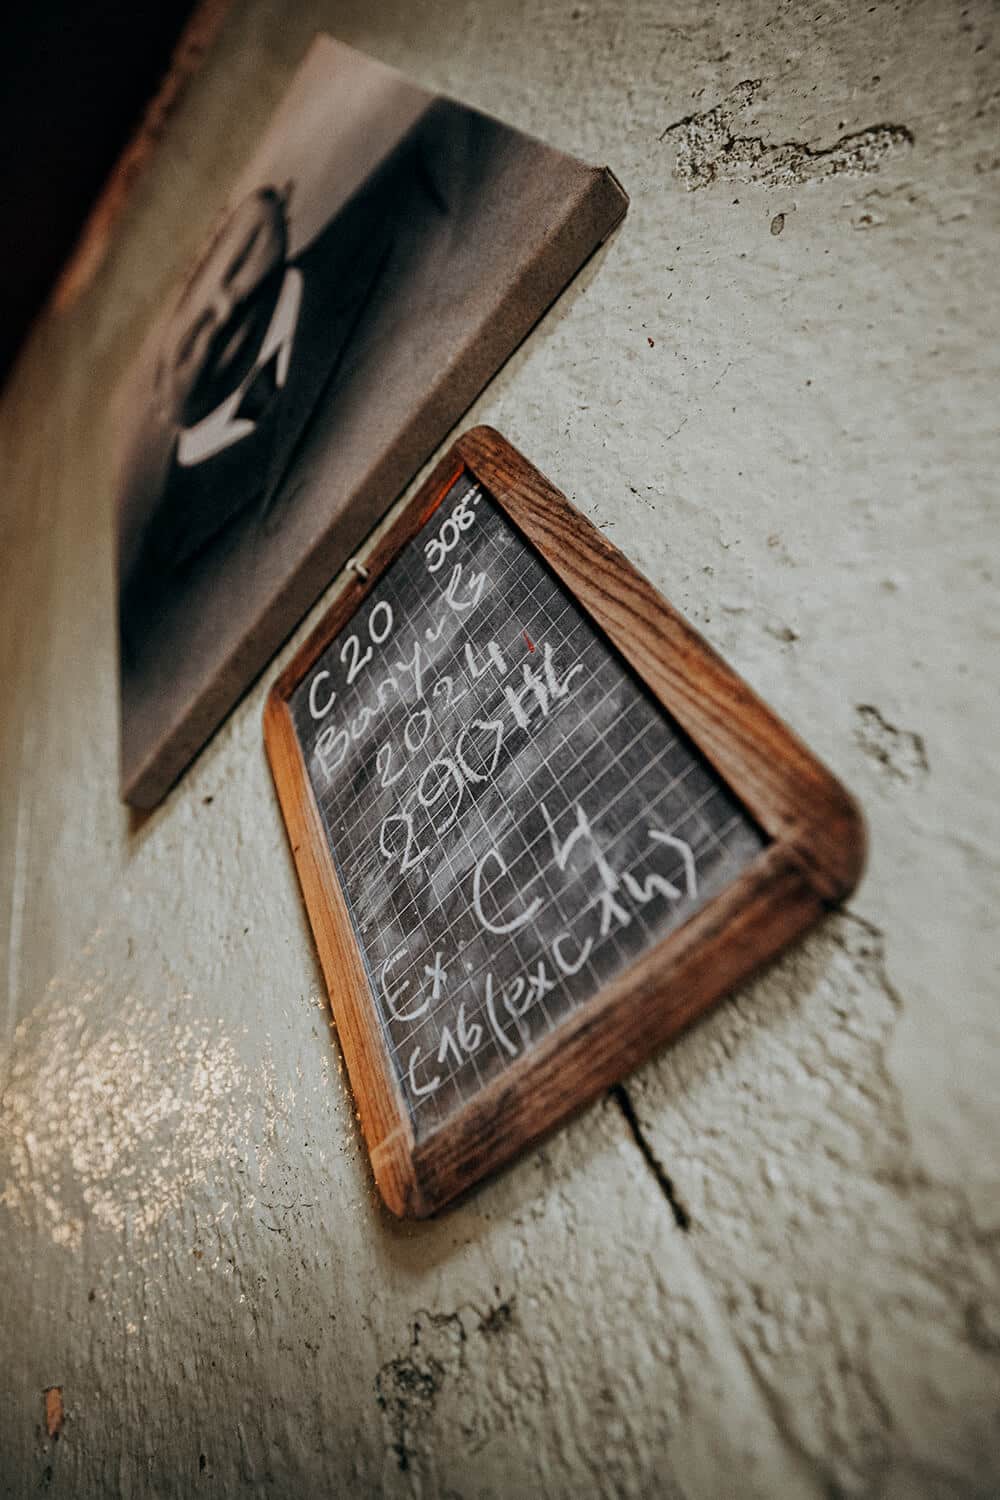 C20 308
Banyuls
2024
290 HL
C4
Ex:
C16 (ex C14)